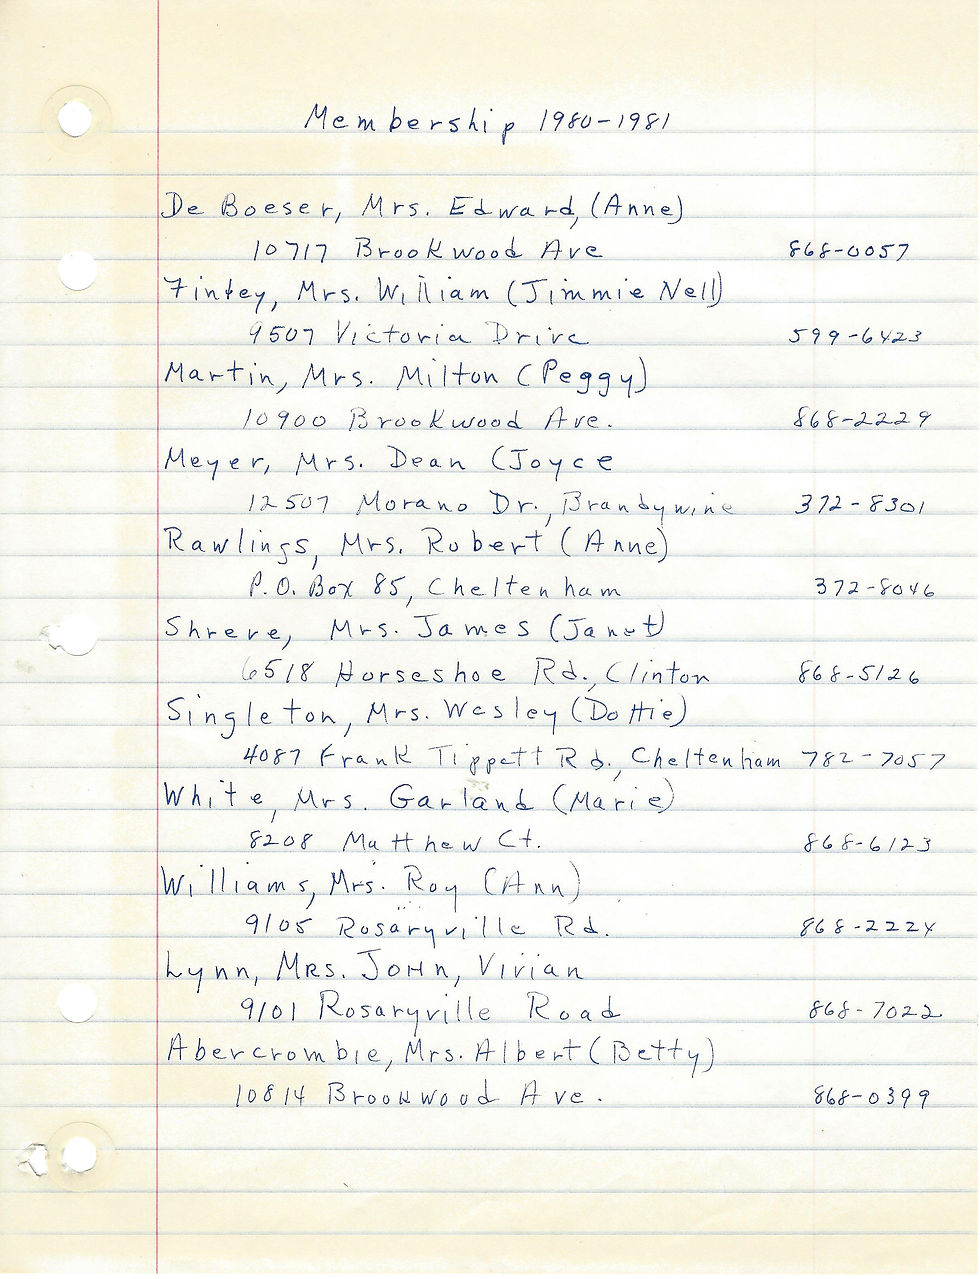 Membership 1980-1981
De Boeser, Mrs. Edward, (Anne)
10717 Brookwood Ave 868-0057
Finley, Mrs. William (Jimmie Nell)
9507 Victoria Drive 599-6423
Martin, Mrs. Milton (Peggy)
10900 Brookwood Ave. 868-2229
Meyer, Mrs. Dean (Joyce
12507 Morano Dr., Brandywine 372-8301
Rawlings, Mrs. Robert (Anne)
P.O. Box 85, Cheltenham 372-8046
Shreve, Mrs. James (Janet)
6518 Horseshoe Rd., Clinton 868-5126
Singleton, Mrs. Wesley (Dottie)
4087 Frank Tippett Rd., Cheltenham 782-7057
White, Mrs. Garland (Marie)
8208 Matthew Ct. 868-6123
Williams, Mrs. Roy (Ann)
9105 Rosaryville Rd. 868-2224
Lynn, Mrs. John, Vivian
9101 Rosaryville Road 868-7022
Abercrombie, Mrs. Albert (Betty)
10814 Brookwood Ave. 868-0399